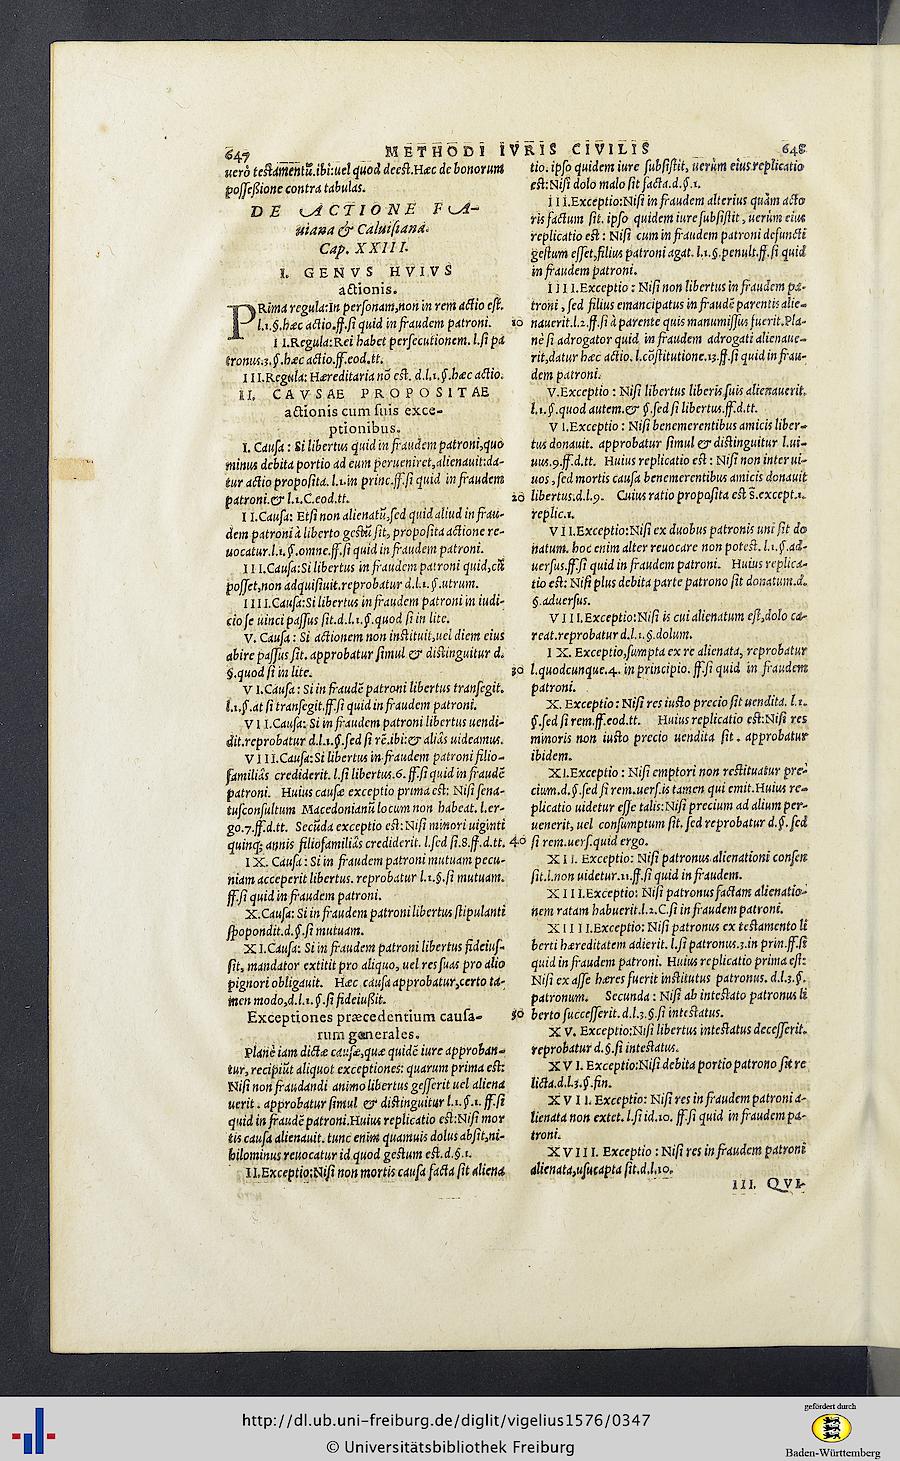 647 METHODI IVRIS CIVILIS 648
uerò testamentũ.ibi:uel quod deest.Hæc de bonorum
possessione contra tabulas.
DE ACTIONE FA-
uiana & Caluisiana.
Cap. XXIII.
I. GENVS HVIVS
actionis.
PRima regula:In personam,non in rem actio est.
l.1.§.hæc actio.ff.si quid in fraudem patroni.
II.Regula:Rei habet persecutionem. l.si pa
tronus.3.§.hæc actio.ff.eod.tt.
III.Regula: Hæreditaria nõ est. d.l.1.§.hæc actio.
II. CAVSAE PROPOSITAE
actionis cum suis exce-
ptionibus.
I. Causa : Si libertus quid in fraudem patroni,quo
minus debita portio ad eum perueniret,alienauit:da-
tur actio proposita. l.1.in princ.ff.si quid in fraudem
patroni.& l.1.C.eod.tt.
II.Causa: Etsi non alienatũ,sed quid aliud in frau-
dem patroni à liberto gestũ sit, proposita actione re-
uocatur.l.1.§.omne.ff.si quid in fraudem patroni.
III.Causa:Si libertus in fraudem patroni quid,cũ
posset,non adquisiuit.reprobatur d.l.1.§.utrum.
IIII.Causa:Si libertus in fraudem patroni in iudi-
cio se uinci passus sit.d.l.1.§.quod si in lite.
V. Causa : Si actionem non instituit,uel diem eius
abire passus sit. approbatur simul & distinguitur d.
§.quod si in lite.
VI.Causa : Si in fraudẽ patroni libertus transegit.
l.1.§.at si transegit.ff.si quid in fraudem patroni.
VII.Causa: Si in fraudem patroni libertus uendi-
dit.reprobatur d.l.1.§.sed si rẽ.ibi:& aliâs uideamus.
VIII.Causa:Si libertus in fraudem patroni filio-
familiâs crediderit. l.si libertus.6. ff.si quid in fraudẽ
patroni. Huius causæ exceptio prima est: Nisi sena-
tusconsultum Macedonianũ locum non habeat. l.er-
go.7.ff.d.tt. Secũda exceptio est:Nisi minori uiginti
quinq; annis filiofamiliâs crediderit. l.sed si.8.ff.d.tt.
IX. Causa : Si in fraudem patroni mutuam pecu-
niam acceperit libertus. reprobatur l.1.§.si mutuam.
ff.si quid in fraudem patroni.
X.Causa: Si in fraudem patroni libertus stipulanti
spopondit.d.§.si mutuam.
XI.Causa: Si in fraudem patroni libertus fideius-
sit, mandator extitit pro aliquo, uel res suas pro alio
pignori obligauit. Hæc causa approbatur,certo ta-
men modo,d.l.1.§.si fideiussit.
Exceptiones præcedentium causa-
rum generales.
Planè iam dictæ causæ,quæ quidẽ iure approban-
tur, recipiũt aliquot exceptiones: quarum prima est:
Nisi non fraudandi animo libertus gesserit uel aliena
uerit . approbatur simul & distinguitur l.1.§.1.ff.si
quid in fraudẽ patroni.Huius replicatio est:Nisi mor
tis causa alienauit. tunc enim quamuis dolus absit,ni-
hilominus reuocatur id quod gestum est.d.§.1.
II.Exceptio:Nisi non mortis causa facta sit aliena
tio. ipso quidem iure subsistit, uerùm eius replicatio
est:Nisi dolo malo sit facta.d.§.1.
III.Exceptio:Nisi in fraudem alterius quàm acto
ris factum sit. ipso quidem iure subsistit , uerùm eius
replicatio est : Nisi cum in fraudem patroni defuncti
gestum esset,filius patroni agat. l.1.§.penult.ff.si quid
in fraudem patroni.
IIII.Exceptio : Nisi non libertus in fraudem pa-
troni , sed filius emancipatus in fraudẽ parentis alie-
10 nauerit.l.2.ff.si à parente quis manumissus fuerit.Pla-
nè si adrogator quid in fraudem adrogati alienaue-
rit,datur hæc actio. l.cõstitutione.13.ff.si quid in frau-
dem patroni.
V.Exceptio : Nisi libertus liberis suis alienauerit.
l.1.§.quod autem.& §.sed si libertus.ff.d.tt.
VI.Exceptio : Nisi benemerentibus amicis liber-
tus donauit. approbatur simul & distinguitur l.ui-
uus.9.ff.d.tt. Huius replicatio est : Nisi non inter ui-
uos , sed mortis causa benemerentibus amicis donauit
20 libertus.d.l.9. Cuius ratio proposita est s̃.except.1.
replic.1.
VII.Exceptio:Nisi ex duobus patronis uni sit do
natum. hoc enim alter reuocare non potest. l.1.§.ad-
uersus.ff.si quid in fraudem patroni. Huius replica-
tio est: Nisi plus debita parte patrono sit donatum.d.
§.aduersus.
VIII.Exceptio:Nisi is cui alienatum est,dolo ca-
reat.reprobatur d.l.1.§.dolum.
IX. Exceptio,sumpta ex re alienata, reprobatur
30 l.quodcunque.4. in principio. ff.si quid in fraudem
patroni.
X. Exceptio : Nisi res iusto precio sit uendita. l.1.
§.sed si rem.ff.eod.tt. Huius replicatio est:Nisi res
minoris non iusto precio uendita sit . approbatur
ibidem.
XI.Exceptio : Nisi emptori non restituatur pre-
cium.d.§.sed si rem.uers.is tamen qui emit.Huius re-
plicatio uidetur esse talis:Nisi precium ad alium per-
uenerit, uel consumptum sit. sed reprobatur d.§. sed
40 si rem.uers.quid ergo.
XII. Exceptio: Nisi patronus alienationi consen
sit.l.non uidetur.11.ff.si quid in fraudem.
XIII.Exceptio: Nisi patronus factam alienatio-
nem ratam habuerit.l.2.C.si in fraudem patroni.
XIIII.Exceptio: Nisi patronus ex testamento li
berti hæreditatem adierit. l.si patronus.3.in prin.ff.si
quid in fraudem patroni. Huius replicatio prima est:
Nisi ex asse hæres fuerit institutus patronus. d.l.3.§.
patronum. Secunda : Nisi ab intestato patronus li
50 berto successerit.d.l.3.§.si intestatus.
XV. Exceptio:Nisi libertus intestatus decesserit.
reprobatur d.§.si intestatus.
XVI. Exceptio:Nisi debita portio patrono sit re
licta.d.l.3.§.fin.
XVII. Exceptio: Nisi res in fraudem patroni a-
lienata non extet. l.si id.10. ff.si quid in fraudem pa-
troni.
XVIII. Exceptio : Nisi res in fraudem patroni
alienata,usucapta sit.d.l.10.
III. QVI-
http://dl.ub.uni-freiburg.de/diglit/vigelius1576/0347
© Universitätsbibliothek Freiburg
gefördert durch
Baden-Württemberg